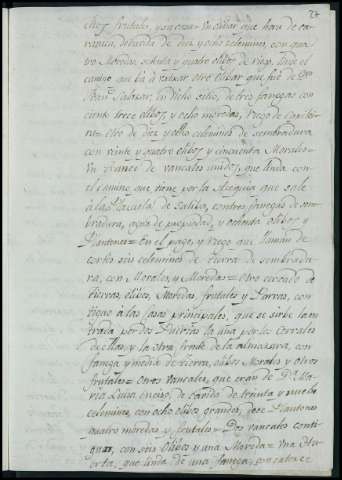 24
frutales, y
de diez y ocho celemines, con qua
tro Moredas, ochenta y quatro olibos de viejo, desde el
camino que bà à otro Olibar que fuè de Dn
Salazar, en dicho sitio, de tres fanegas con
ciento trece olibos, y ocho moredas, riego de
Otro de diez y ocho celemines de sembradura
con veinte y quatro olibos y cincuenta Morales=
Un de vancales unidos, que linda con
el Camino que tiene por la Azequia que sale
à la Plazuela de con tres fanegas de sem
bradura, agua de propiedad, y ochenta olibos y
Plantones= En el pago, y riego que llaman de
seis celemines de tierra de sembradu
ra, con Morales, y Moredas= Otro cercado à
tierras, olibos, Moredas, frutales y Parras, con
riego à las Casas principales, que se sirbe la en
trada por dos Puertas la una por los Corrales
de ellas, y la otra frente de la almazara, con
fanega y media de tierra, olibos Morales y otros
frutales= Otros vancales, que eran de Da Ma
ria Luisa de cavida de treinta y nuebe
celemines, con ocho olibos grandes, doce Plantones
quatro moredas y frutales= Dos vancales conti
guos, con seis Olibos y una Moreda= Una Hu
erta, que linda de una fanega, con catorce